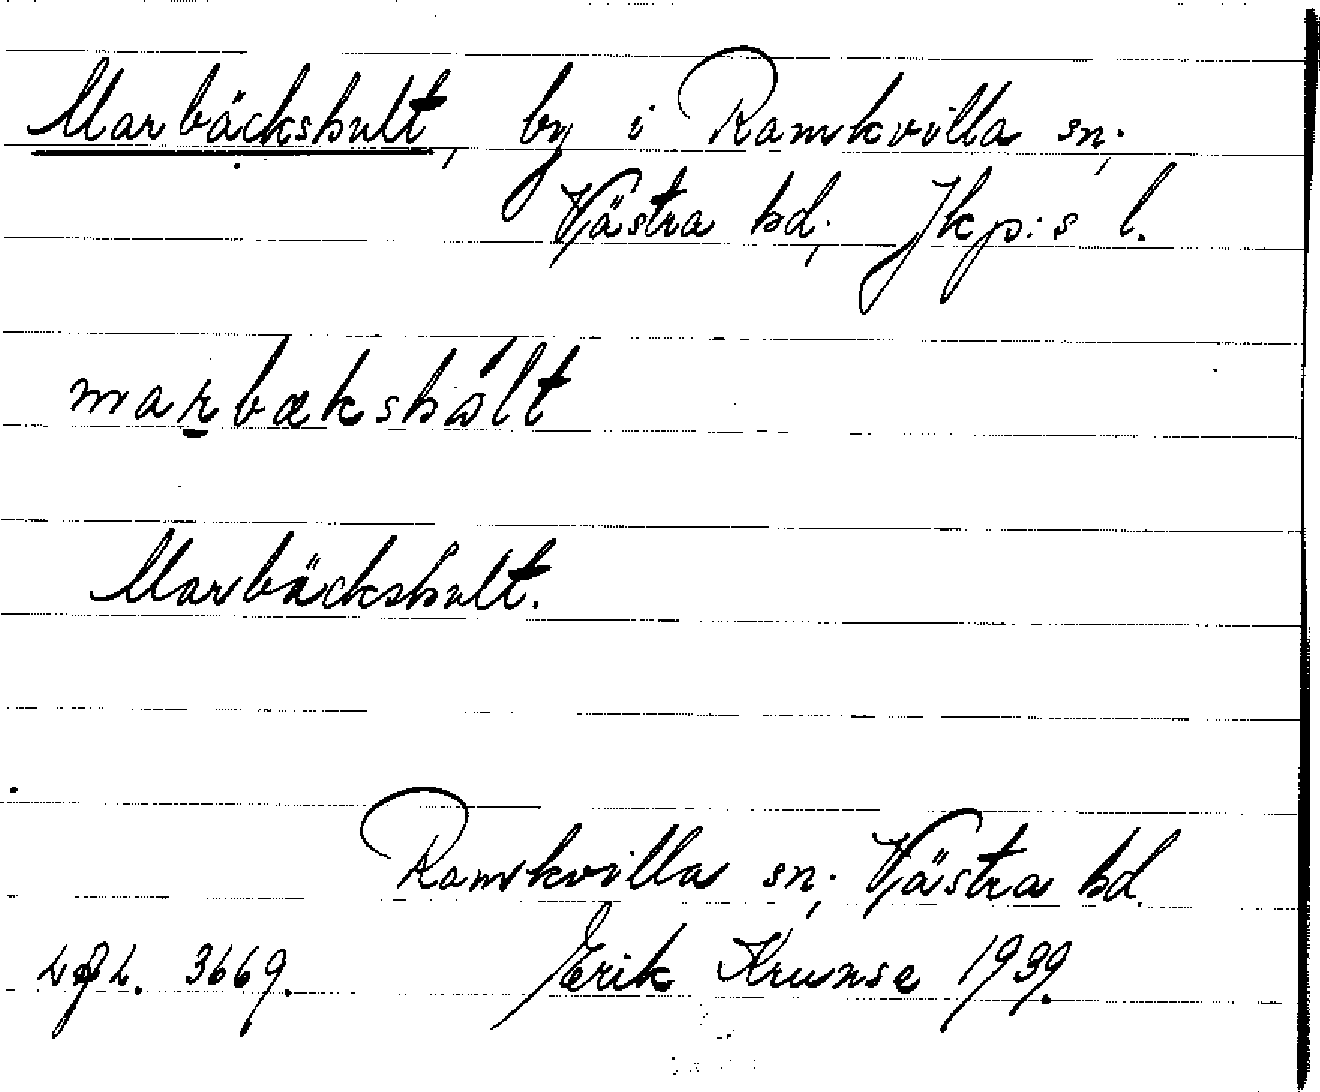 Marbäckshult, by i Ramkvilla sn;
Västra hd; Jkp:s l.
marbækshált
Marbäckshult.
Ramkvilla sn; Västra hd.
3669. Erik Krunse 1939.